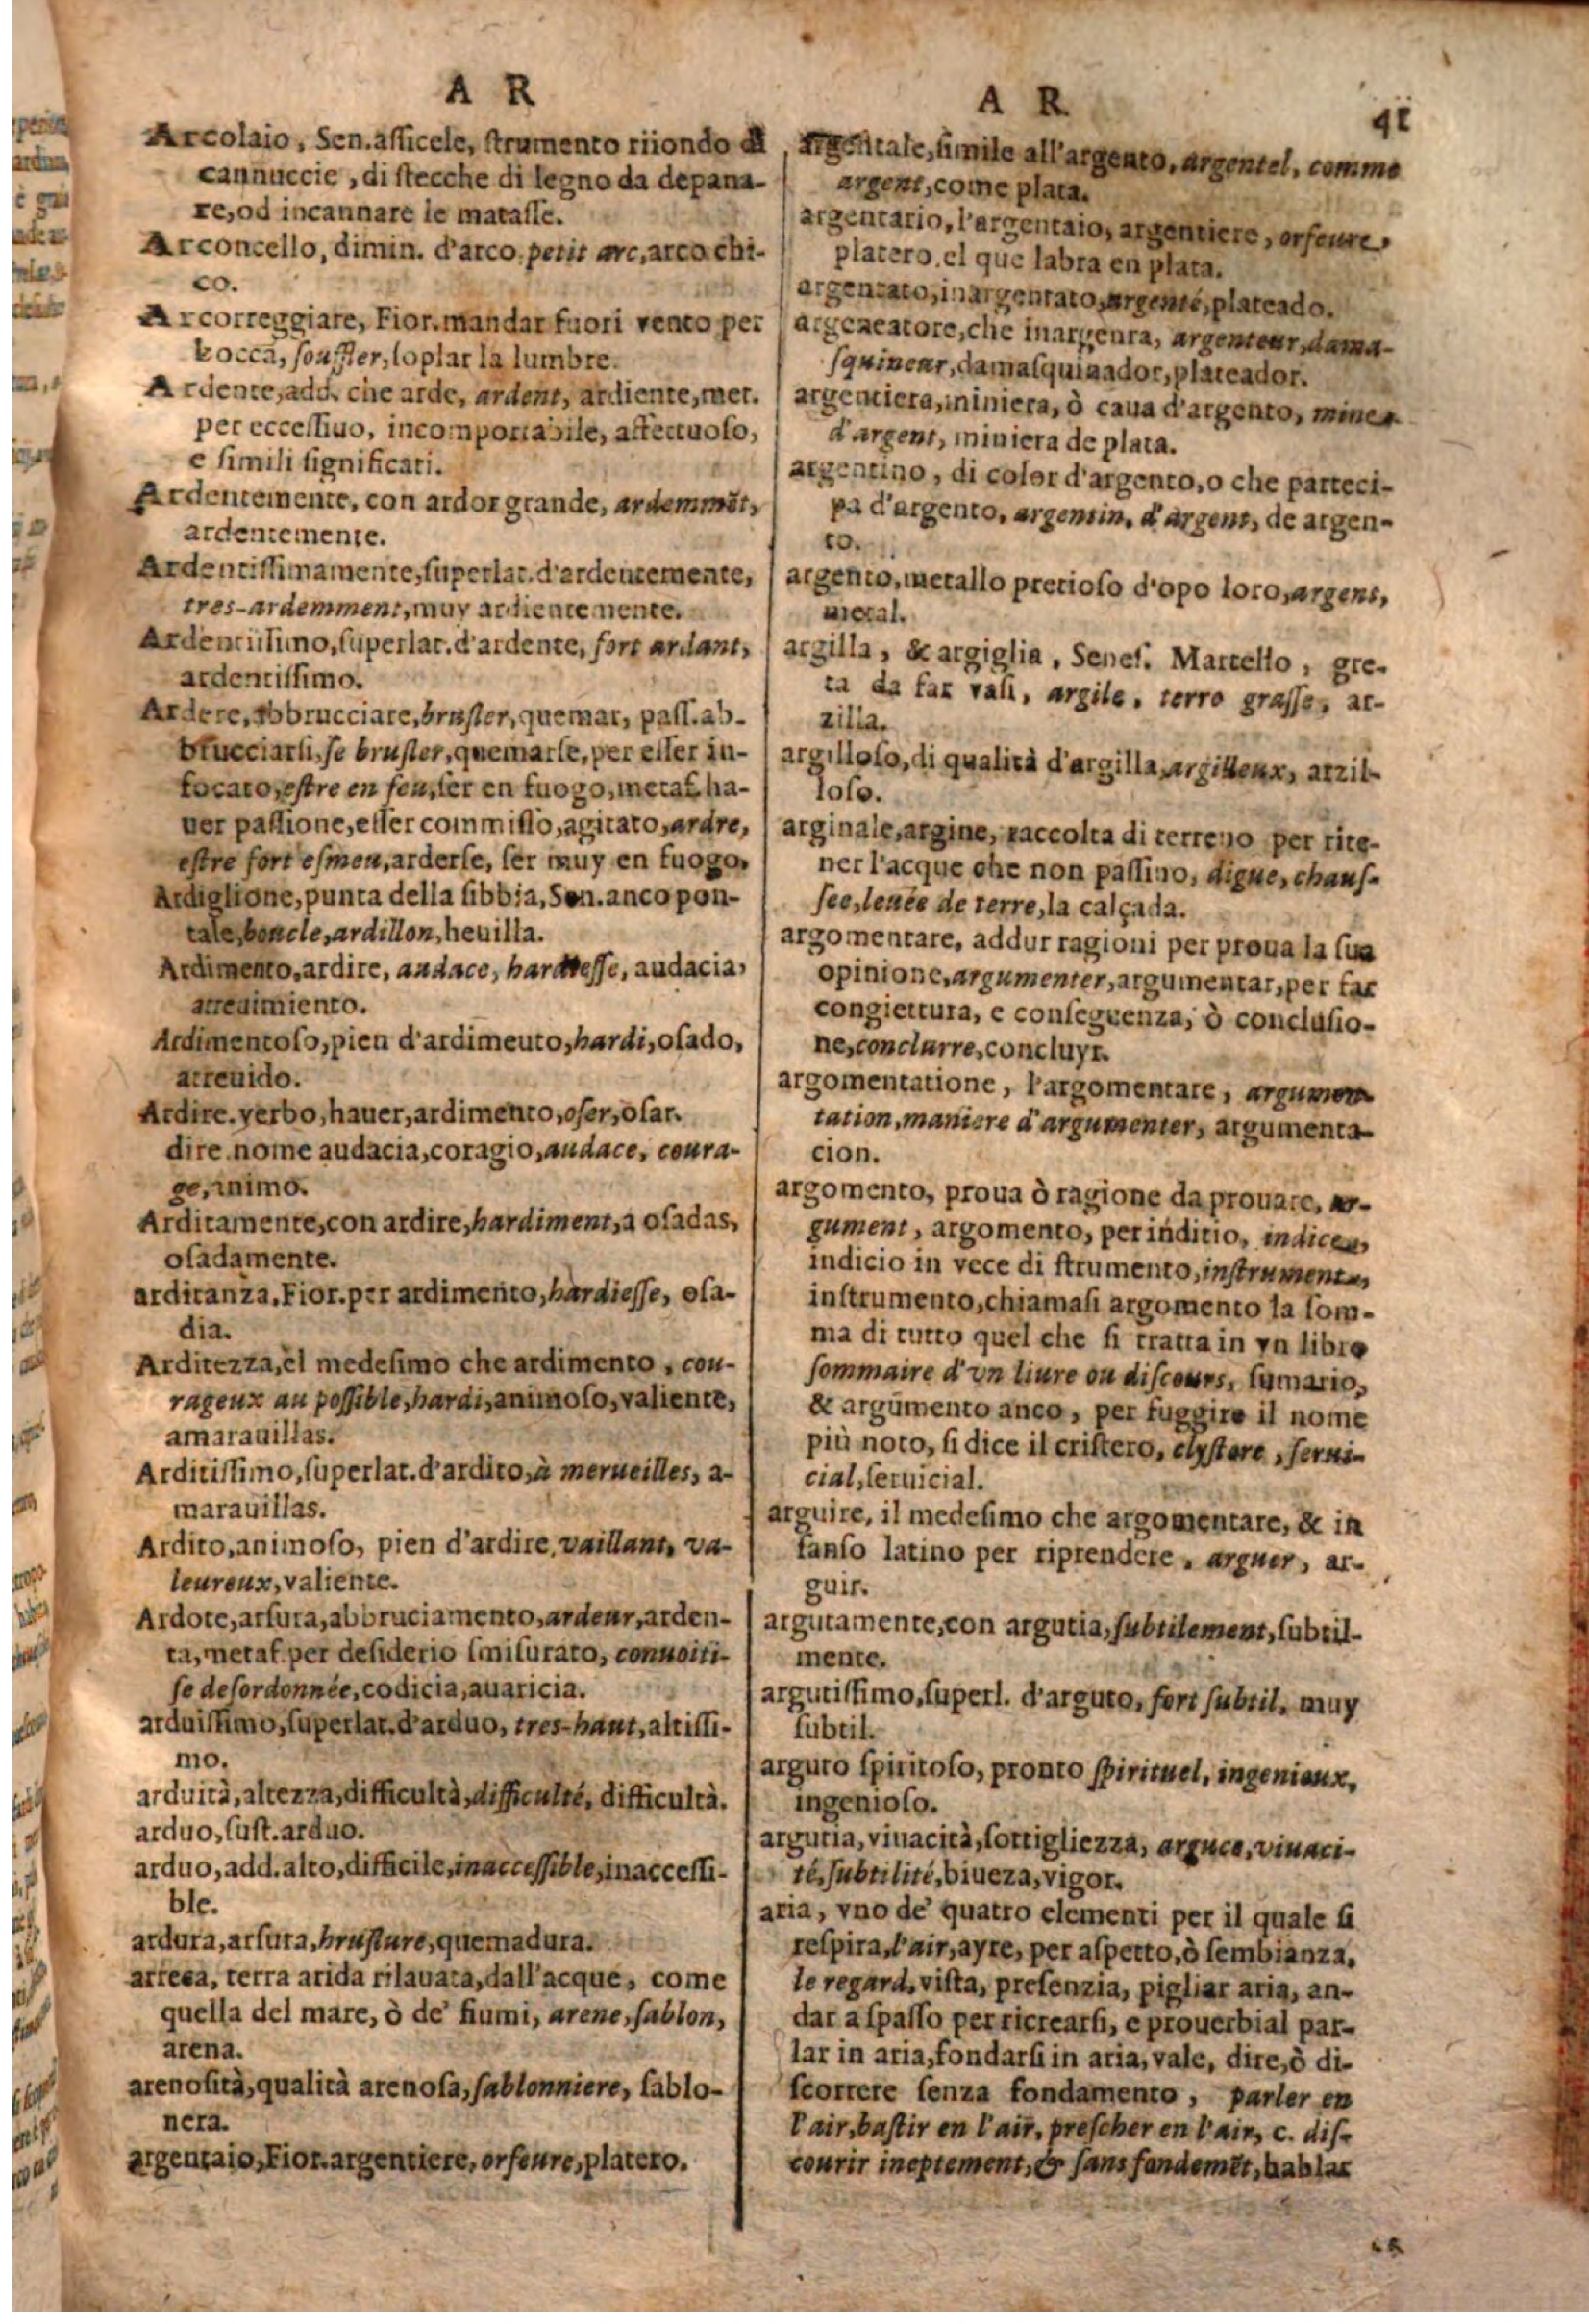 A R
Arcolaio, Sen.aſſicele, ſtrumento riiondo di
cannuccie, di ſtecche di legno da depana-
re, od incannare le mataſſe.
Arconcello, dimin. d'arco, petit arc, arco chi-
co.
Arcorreggiare, Fior. mandar fuori vento per
bocca, ſouffler, ſoplar la lumbre.
Ardente, add. che arde, ardent, ardiente, met.
per ecceſſiuo, incomportabile, affettuoſo,
e ſimili ſignificati.
Ardentemente, con ardor grande, ardemmẽt,
ardentemente.
Ardentiſſimamente, ſuperlat. d'ardentemente,
tres-ardemment, muy ardientemente.
Ardentiſſimo, ſuperlat. d'ardente, fort ardant,
ardentiſſimo.
Ardere, abbrucciare, bruſler, quemar, paſſ. ab-
brucciarſi, ſe bruſler, quemarſe, per eſſer in-
focato, eſtre en feu, ſer en fuogo, metaf. ha-
uer paſſione, eſſer commiſſo, agitato, ardre,
eſtre fort eſmeu, arderſe, ſer muy en fuogo,
Ardiglione, punta della fibbia, Sen. anco pon-
tale, boucle, ardillon, heuilla.
Ardimento, ardire, audace, hardieſſe, audacia,
atreuimiento.
Ardimentoſo, pien d'ardimeuto, hardi, oſado,
atreuido.
Ardire. verbo, hauer, ardimento, oſer, oſar.
dire. nome audacia, coragio, audace, coura-
ge, inimo.
Arditamente, con ardire, hardiment, a oſadas,
oſadamente.
arditanza, Fior. per ardimento, hardieſſe, oſa-
dia.
Arditezza, èl medeſimo che ardimento, cou-
rageux au poſſible, hardi, animoſo, valiente,
amarauillas.
Arditiſſimo, ſuperlat. d'ardito, à merueilles, a-
marauillas.
Ardito, animoſo, pien d'ardire, vaillant, va-
leureux, valiente.
Ardote, arſura, abbruciamento, ardeur, arden-
ta, metaf. per deſiderio ſmiſurato, conuoiti-
ſe deſordonnée, codicia, auaricia.
arduiſſimo, ſuperlat. d'arduo, tres-haut, altiſſi-
mo.
arduità, altezza, difficultà, difficulté, difficultà.
arduo, ſuſt. arduo.
arduo, add. alto, difficile, inacceſſible, inacceſſi-
ble.
ardura, arſura, bruſlure, quemadura.
arrena, terra arida rilauata, dall'acque, come
quella del mare, ò de' fiumi, arene, ſablon,
arena.
arenoſità, qualità arenoſa, ſablonniere, ſablo-
nera.
argentaio, Fior. argentiere, orfeure, platero.
A R
41
argentale, ſimile all'argento, argentel, comme
argent, come plata.
argentario, l'argentaio, argentiere, orfeure,
platero, el que labra en plata.
argentato, inargentato, argenté, plateado.
argentatore, che inargenta, argenteur, dama-
ſquineur, damaſquinador, plateador.
argentiera, miniera, ò caua d'argento, mines
d'argent, miniera de plata.
argentino, di color d'argento, o che parteci-
pa d'argento, argentin, d'argent, de argen-
to.
argento, metallo pretioſo d'opo loro, argent,
metal.
argilla, & argiglia, Seneſ. Martello, gre-
ta da far vaſi, argile, terro graſſe, ar-
zilla.
argilloſo, di qualità d'argilla, argilleux, arzil-
loſo.
arginale, argine, raccolta di terreno per rite-
ner l'acque che non paſſino, digue, chauſ-
ſee, leuée de terre, la calçada.
argomentare, addur ragioni per proua la ſua
opinione, argumenter, argumentar, per far
congiettura, e conſeguenza, ò concluſio-
ne, conclurre, concluyr.
argomentatione, l'argomentare, argumen-
tation, maniere d'argumenter, argumenta-
cion.
argomento, proua ò ragione da prouare, ar-
gument, argomento, per inditio, indices,
indicio in vece di ſtrumento, inſtrument,
inſtrumento, chiamaſi argomento la ſom-
ma di tutto quel che ſi tratta in vn libro
ſommaire d'vn liure ou diſcours, ſumario,
& argumento anco, per fuggire il nome
più noto, ſi dice il criſtero, clyſtere, ſerui-
cial, ſeruicial.
arguire, il medeſimo che argomentare, & in
ſanſo latino per riprendere, arguer, ar-
guir.
argutamente, con argutia, ſubtilement, ſubtil-
mente.
argutiſſimo, ſuperl. d'arguto, fort ſubtil, muy
ſubtil.
arguto ſpiritoſo, pronto ſpirituel, ingenieux,
ingenioſo.
argutia, viuacità, ſottigliezza, arguce, viuaci-
té, ſubtilité, biueza, vigor.
aria, vno de' quatro elementi per il quale ſi
reſpira, l'air, ayre, per aſpetto, ò ſembianza,
le regard, viſta, preſenzia, pigliar aria, an-
dar a ſpaſſo per ricrearſi, e prouerbial par-
lar in aria, fondarſi in aria, vale, dire, ò di-
ſcorrere ſenza fondamento, parler en
l'air, baſtir en l'air, preſcher en l'air, c. diſ-
courir ineptement, & ſans fondemẽt, hablar